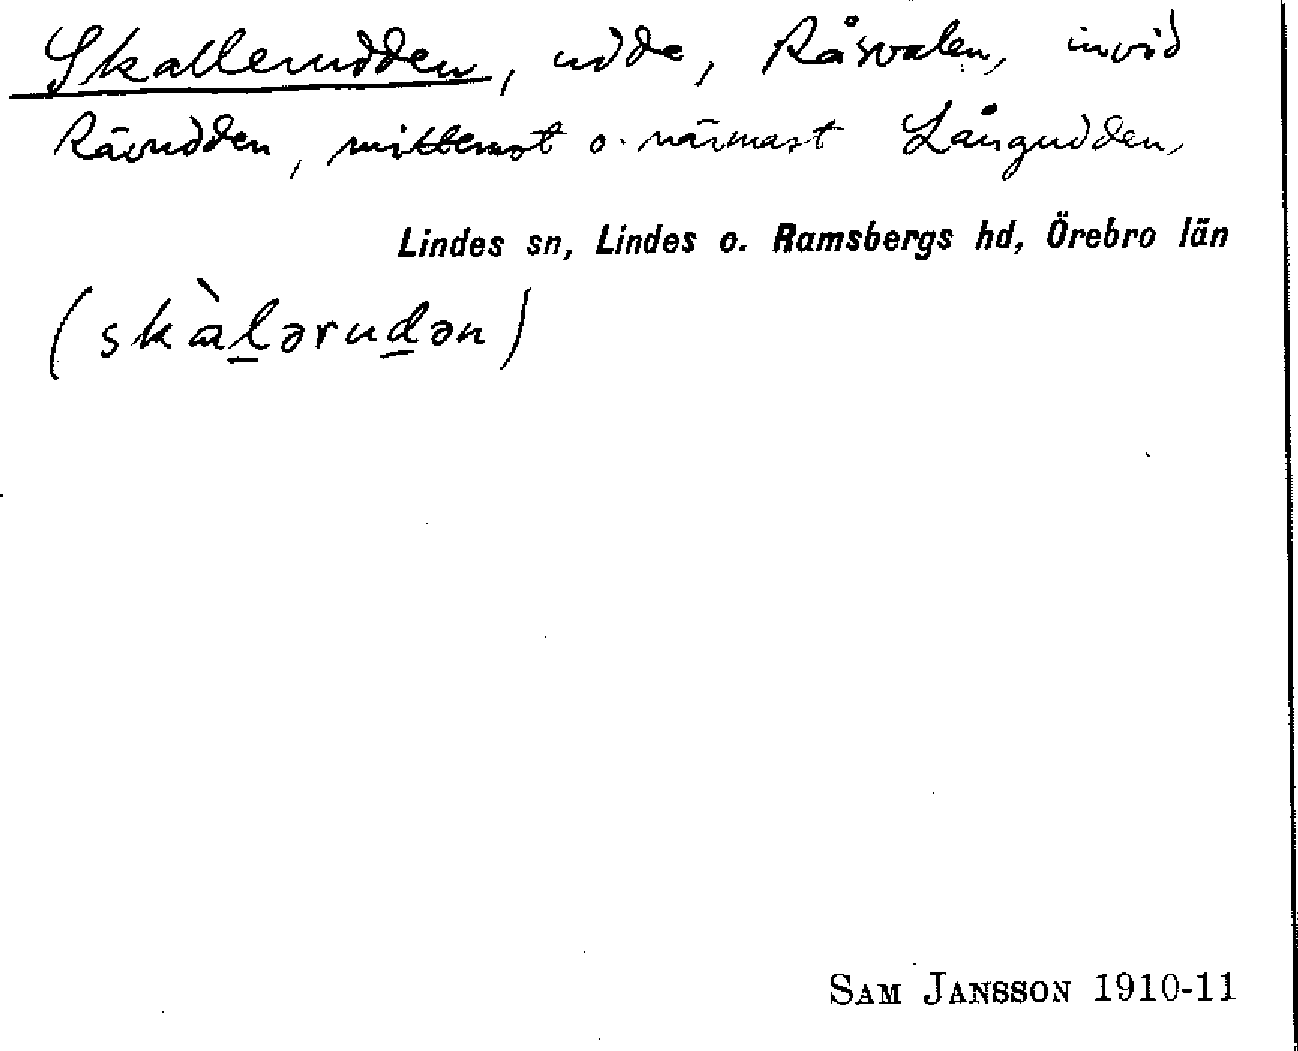 Skallerudden, udde, Råsvalen, invid
Rävudden, mittemot o. närmast Långudden,
Lindes sn, Lindes o. Ramsbergs hd, Örebro län
(skàl̲ərud̲ən)
SAM JANSSON 1910-11